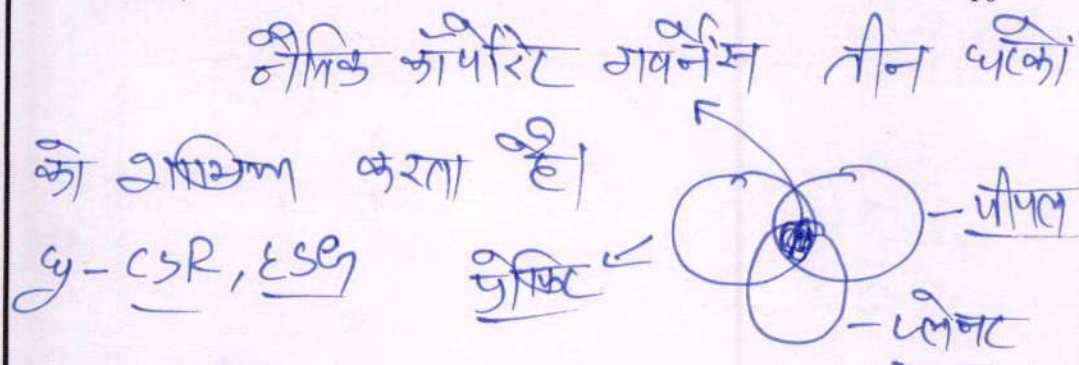 नैतिक कॉर्पोरेट गवर्नेंस तीन घटकों
को शामिल करता है।
- CSR, ESG
पीपल
प्रोफिट
प्लेनट